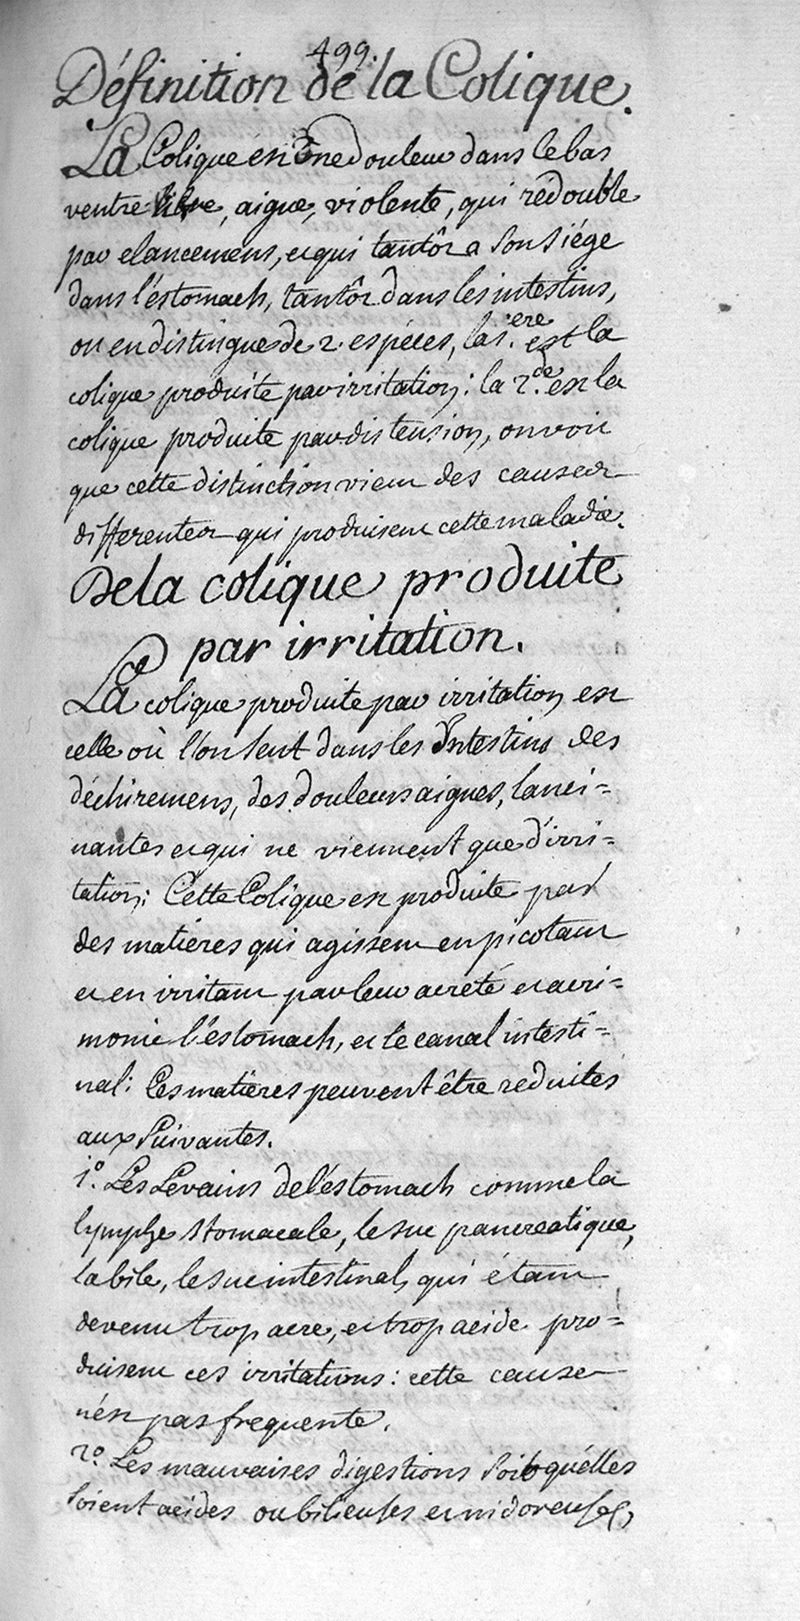 499.
Définition de la Colique.
La Colique est une douleur dans le bas
ventre libre, aigue, violente, qui rédouble
par elancemens, et qui tantôt a son siége
dans l'éstomach, tantôt dans les intestins,
on en distingue de 2. espéces, la 1.ere est la
colique produite par irritation: la 2.de est la
colique produite par distension, on voit
que cette distinction vient des causes
differentes qui produisent cette maladie.
De la colique produite
par irritation.
La colique produite par irritation est
celle où l'on sent dans les Intestins des
déchiremens, des douleurs aigues, lanci=
nantes et qui ne viennent que d'irri=
tation; Cette Colique est produite par
des matiéres qui agissent en picotant
et en irritant par leur acreté et acri=
monie l'éstomach, et le canal intesti=
nal: Ces matiéres peuvent être reduites
aux suivantes.
1.º Les Levains de l'éstomach comme la
lymphe stomacale, le suc pancreatique,
la bile, le suc intestinal, qui étant
devenu trop acre, et trop acide pro=
duisent ces irritations: cette cause
n'ést pas frequente.
2.º Les mauvaises digestions soit qu'élles
soient acides ou bilieuses et nidoreuses,